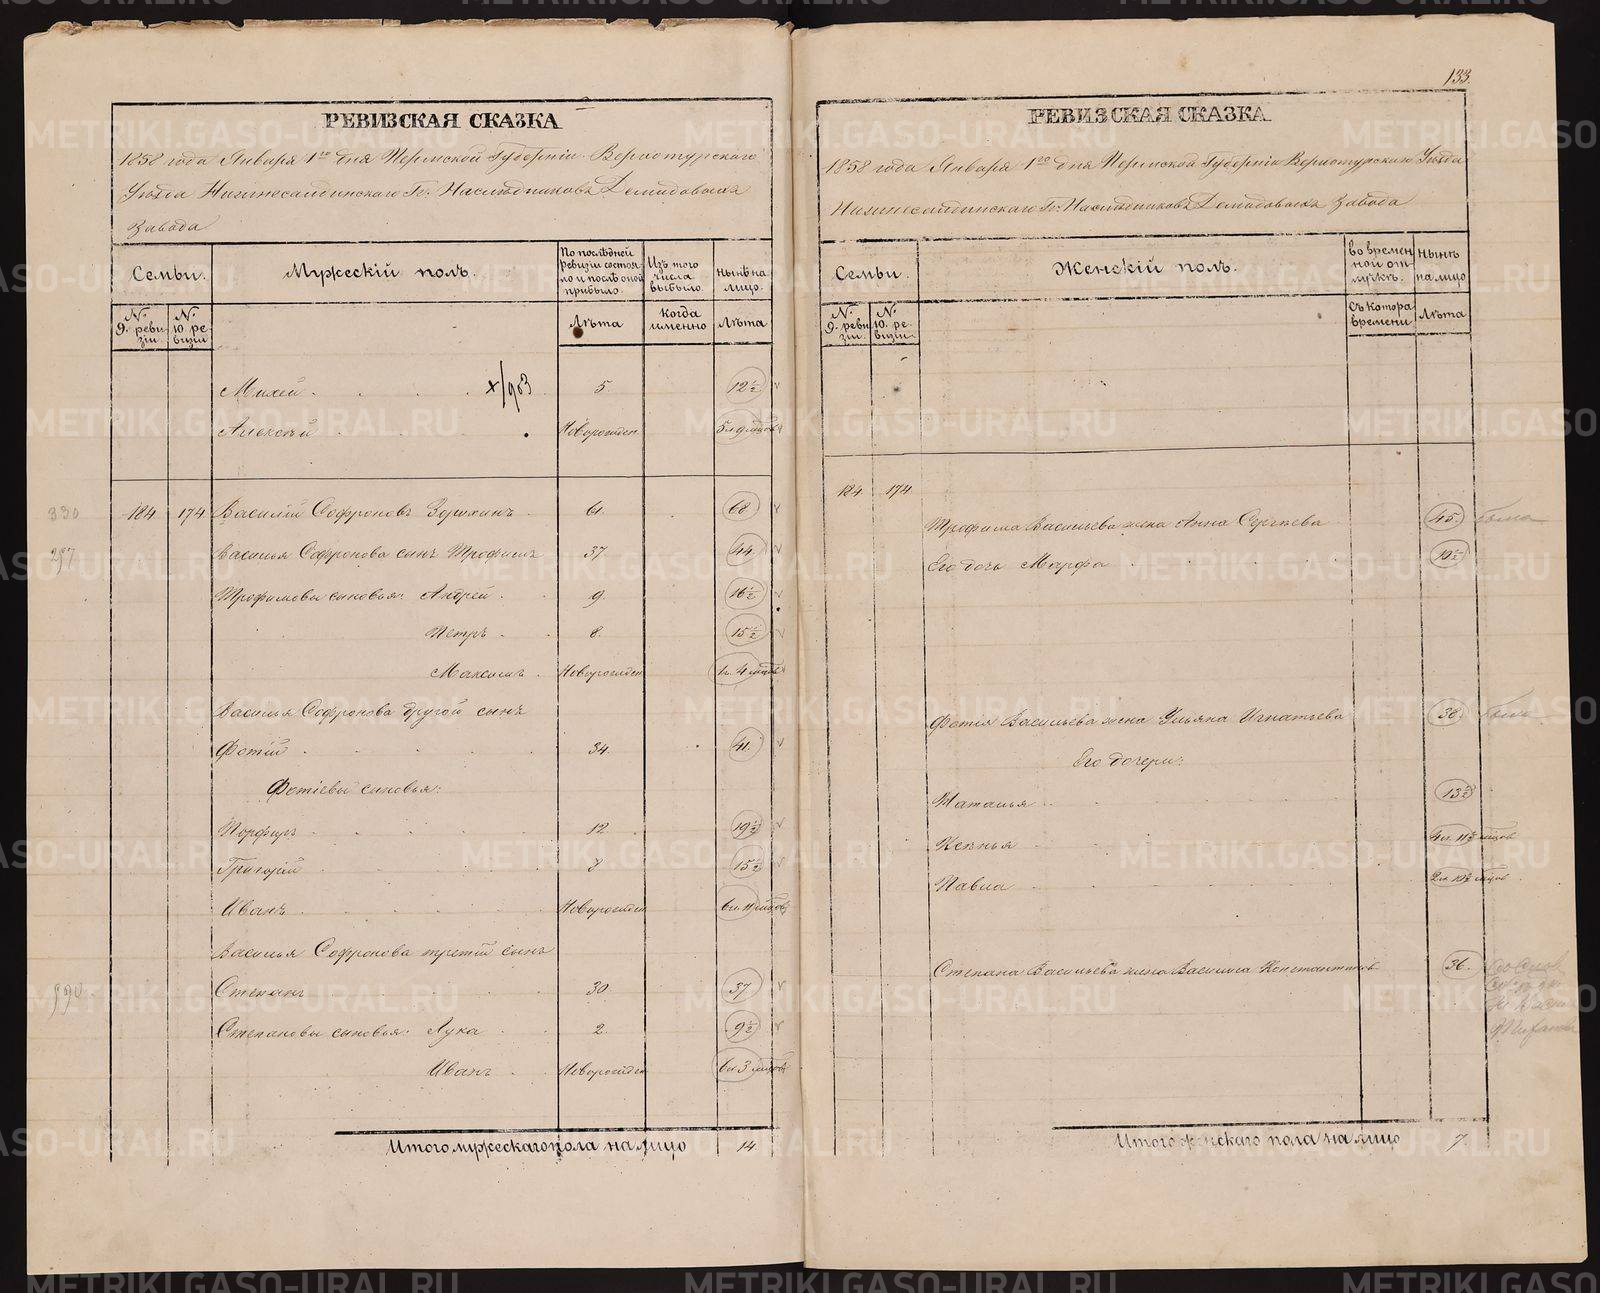 133.
РЕВИЗСКАЯ СКАЗКА
1858 года Января 1го дня Пермской Губернiи Верхотурскаго
Уѣзда Нижнесалдинскаго Гг. Наслѣдниковъ Демидовыхъ
Завода
Семьи. Мужескiй полъ. По послѣдней ревизiи состояло и послѣ оной прибыло. Изъ того числа выбыло. Нынѣ на лицо.
№ 9. ревизiи. № 10 ревизiи Лѣта Когда именно Лѣта
Михей 5. 12½
x/983
Алексѣй Новорожден 5 л. 9 мѣсцовъ
330
184. 174. Василiй Софроновъ Зорихинъ 61. 68
297
Василья Софронова сынъ Трофимъ 37 44.
Трофимовы сыновья: Андрей 9. 16½
Петръ 8. 15½
Максимъ Новорожден 1 г. 4 мѣсцовъ
Василья Софронова другой сынъ
Фотiй 34. 41.
Фотiевы сыновья:
Порфиръ 12. 19½
Григорiй 8 15½
Иванъ Новорожден 6 л. 11 мѣсцовъ
Василья Софронова третiй сынъ
Степанъ 30. 37
Степановы сыновья: Лука 2. 9½
Иванъ Новорожден 6 л 3 мѣсцовъ
Итого мужескаго пола на лицо 14.
РЕВИЗСКАЯ СКАЗКА
1858 года Января 1го дня Пермской Губернiи Верхотурскаго Уѣзда
Нижнесалдинскаго Гг. Наслѣдниковъ Демидовыхъ Завода
Семьи. Женскiй полъ. Во временной отлучкѣ. Нынѣ на лицо
№ 9. ревизiи. № 10. ревизiи. Съ котора времени Лѣта
184. 174.
Трофима Васильева жена Анна Сергѣева 45.
Его дочь Марфа 19½
Фотiя Васильева жена Ульяна Игнатьева 38.
Его дочери:
Наталья 13½
Ксенья 4 л. 11½ мѣсцов
Павла 2 л. 10½ мѣсцов
Степана Васильева жена Василиса Константинов 36.
Итого женскаго пола на лицо 7.
METRIKI.GASO-URAL.RU